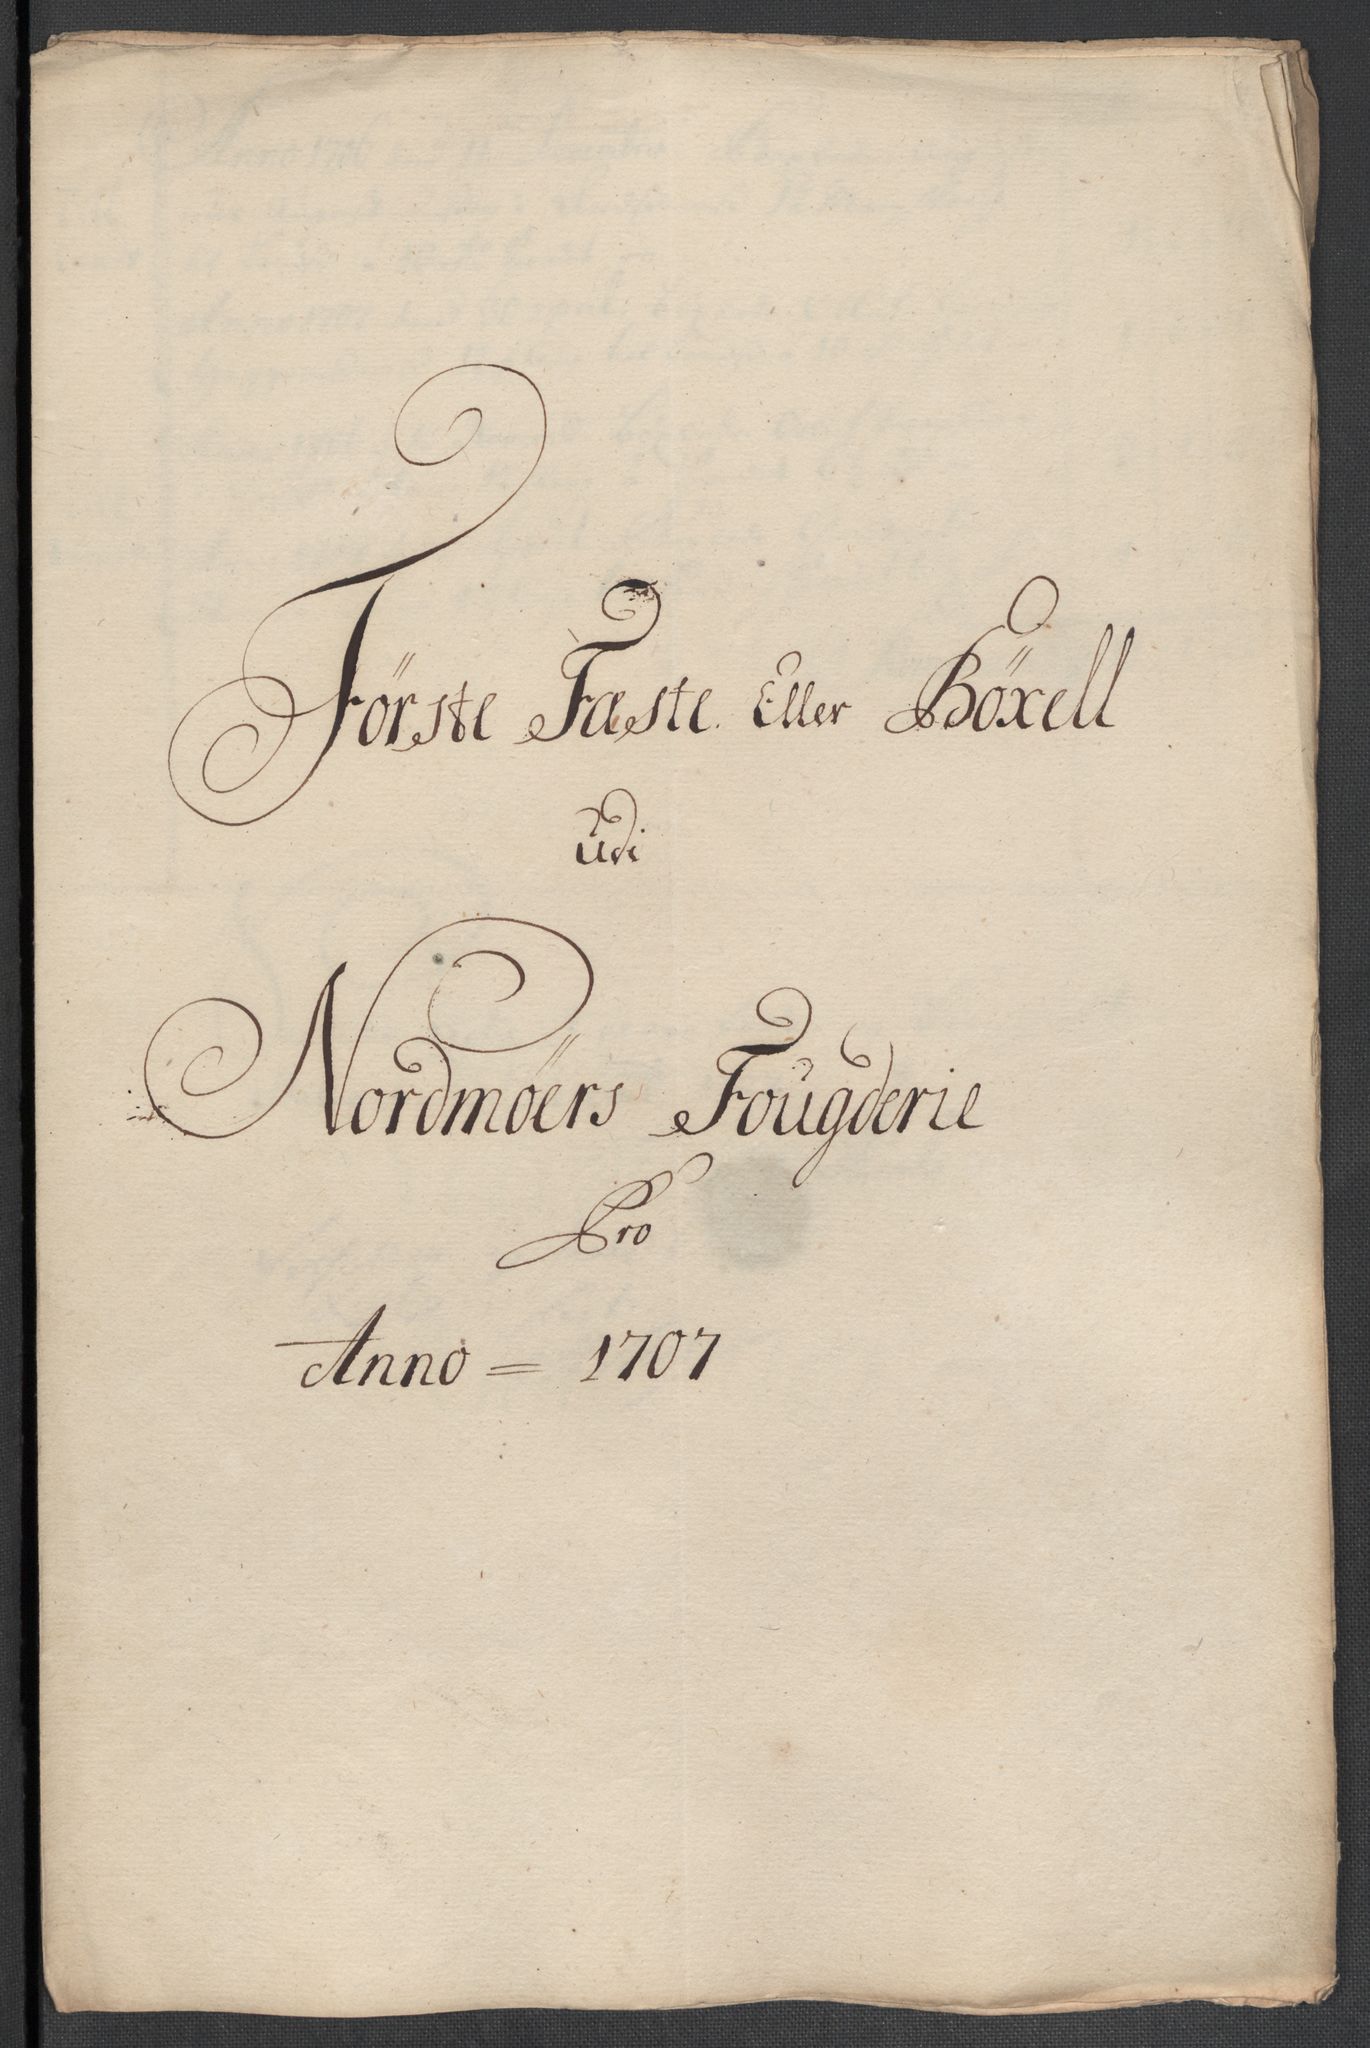 Förste Fæste Eller Böxell
Udi
Nordmöers Fougderie
Pro
Anno = 1707